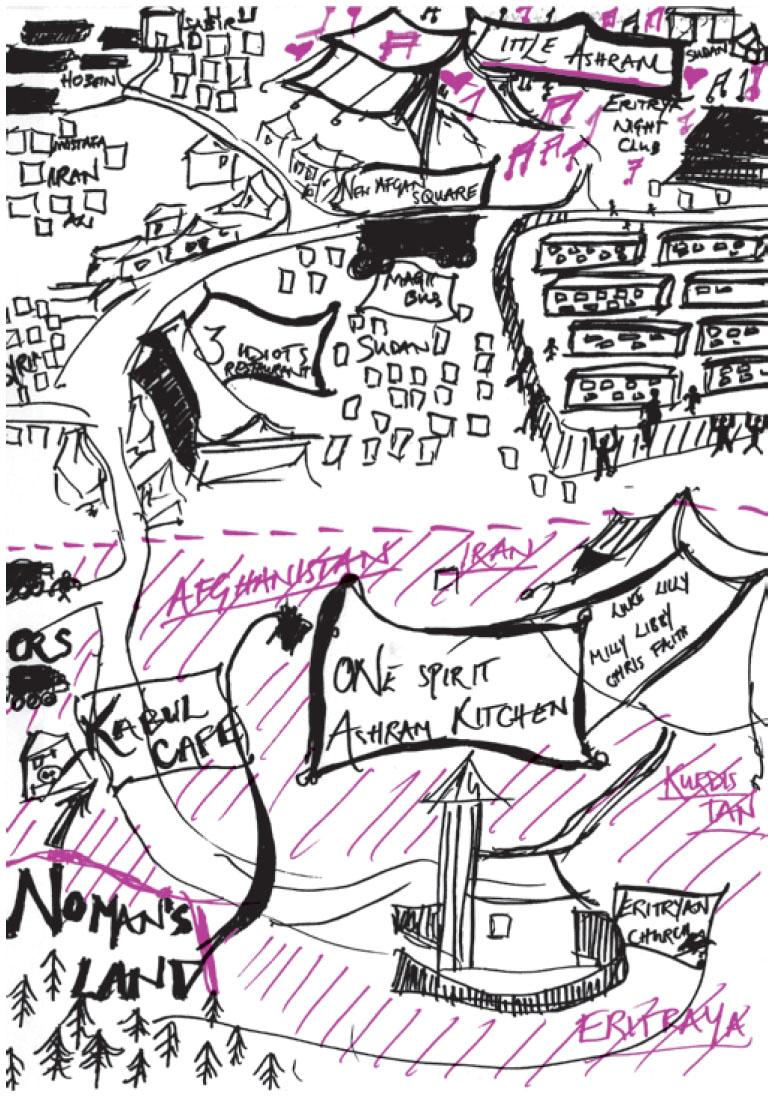 SABIR
HOSEIN
LITTLE ASHRAM
SUDAN
ERITRYA
NIGHT
CLUB
MOSTAFA
IRAN
NEW AFGAN
SQUARE
MAGIC
BUS
3 IDIOTS
RESTAURANT
SUDAN
AFGHANISTAN
IRAN
LUKE LILLY
MILLY LIBBY
CHRIS FAITH
ORS
ONE SPIRIT
ASHRAM KITCHEN
KABUL
CAFE
KURDIS
TAN
NOMAN'S
LAND
ERITRYAN
CHURCH
ERITRAYA